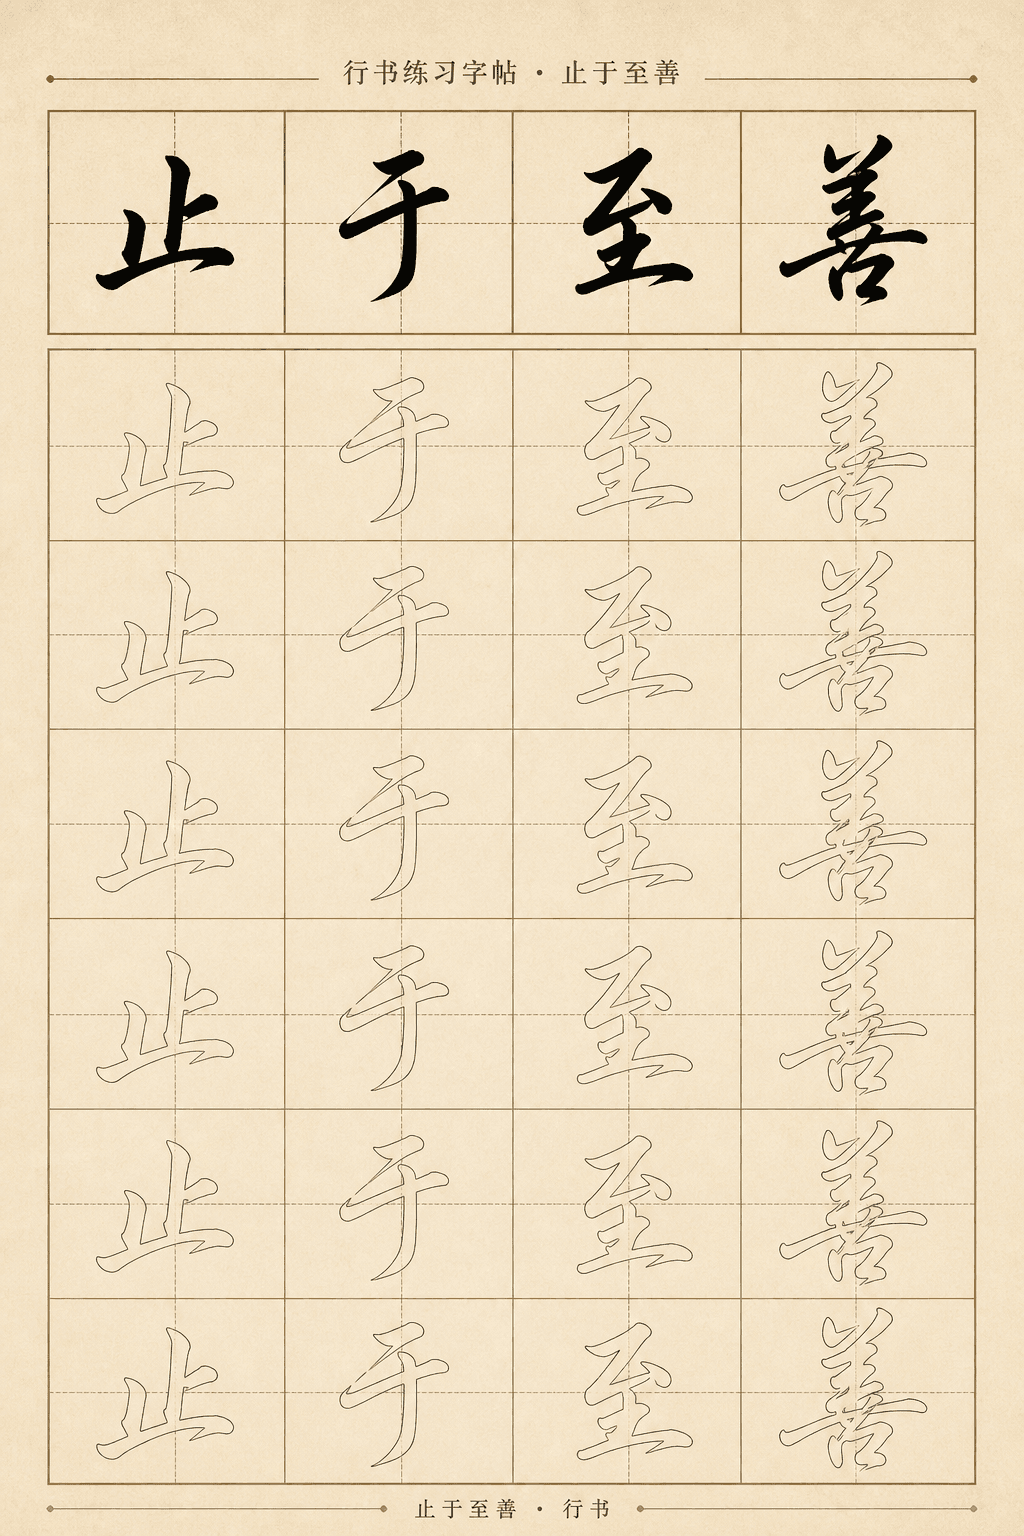 行书练习字帖·止于至善
止于至善
止于至善
止于至善
止于至善
止于至善
止于至善
止于至善
止于至善·行书